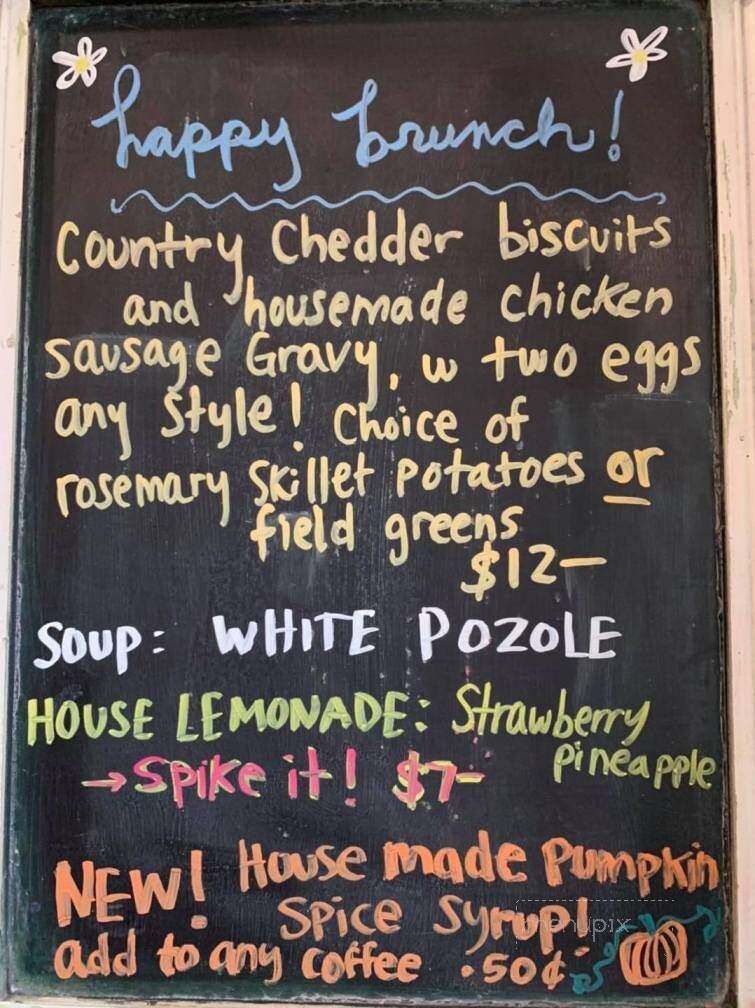 happy brunch!
Country Chedder biscuits
and housemade chicken
sausage Gravy, w two eggs
any style! Choice of
rosemary skillet potatoes or
field greens
$12-
SOUP: WHITE POZOLE
HOUSE LEMONADE: Strawberry
pineapple
→ Spike it! $7-
NEW! House made Pumpkin
Spice Syrup!
add to any coffee .50¢
menupix